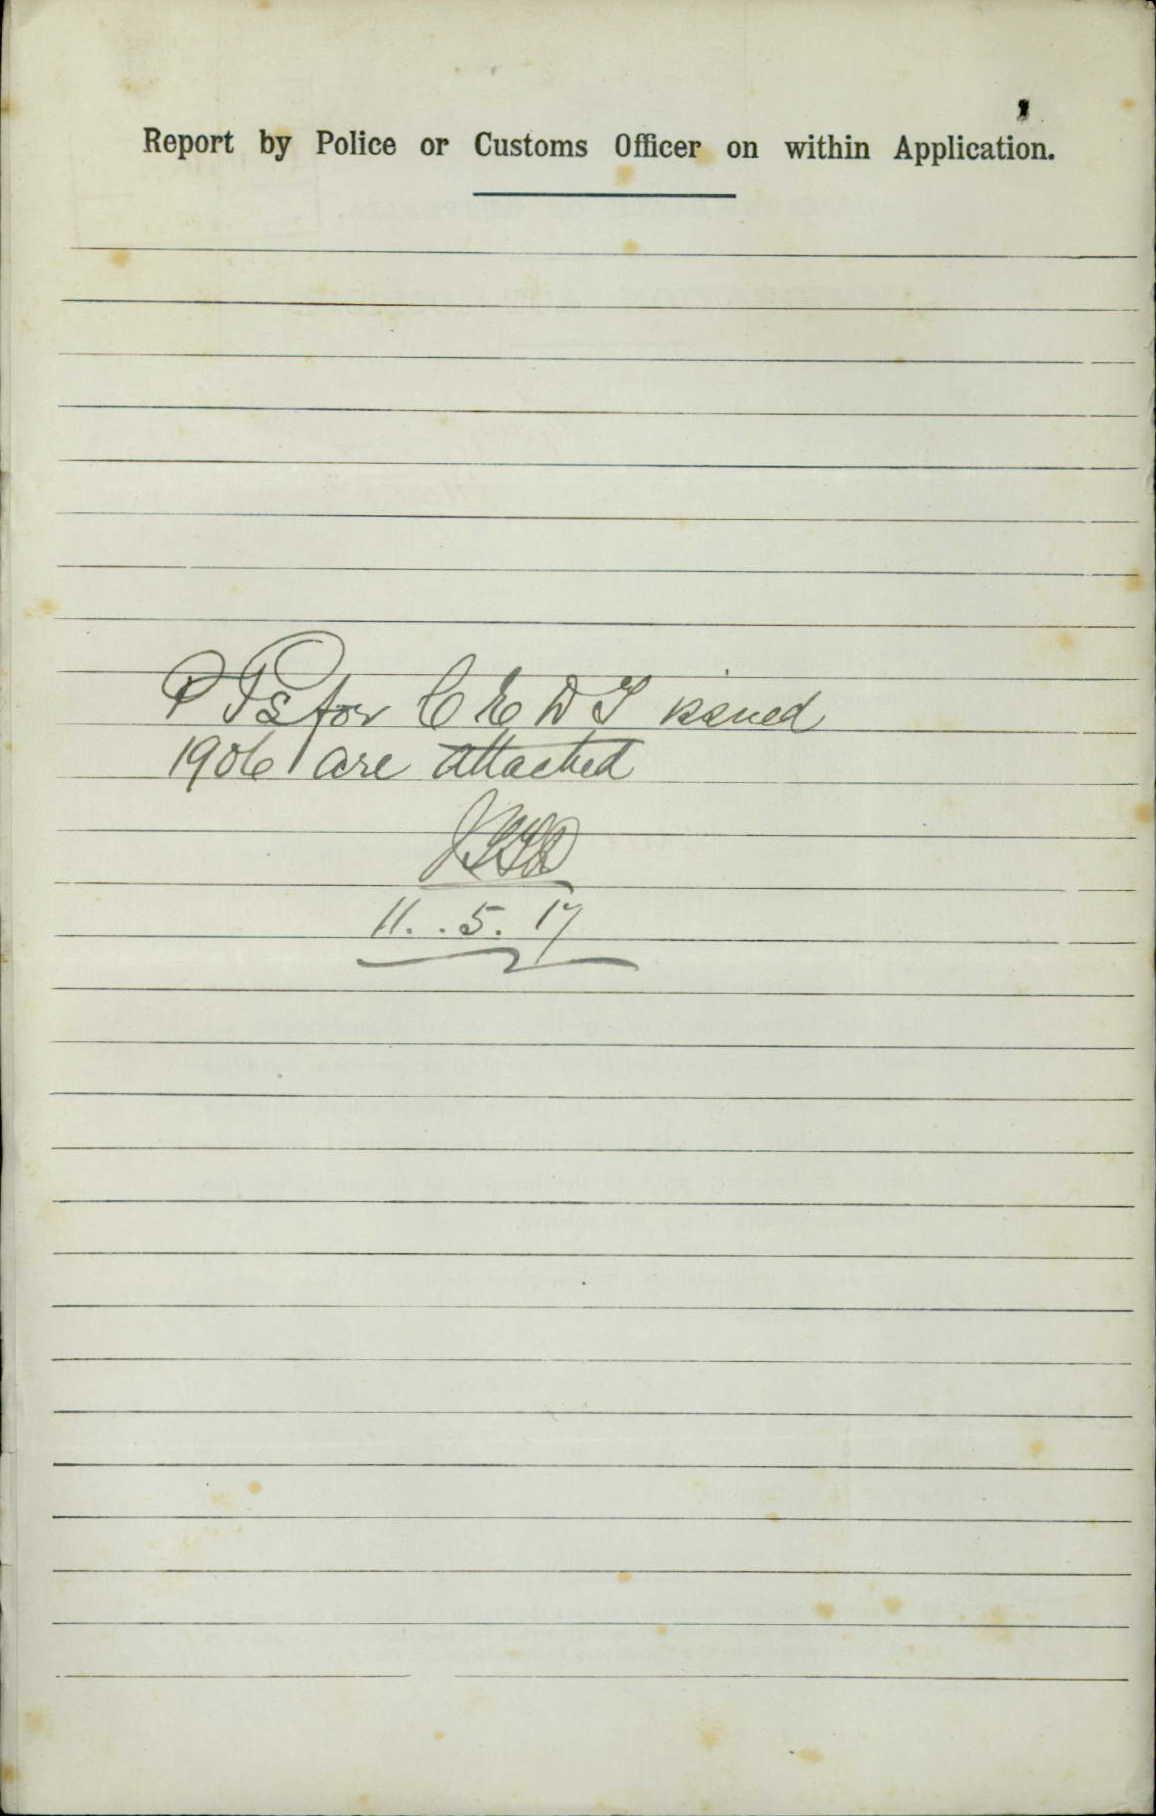 Report by Police or Customs Officer on within Application.
P Ts for C E D T issued
1906 are attached
11. . 5. 17